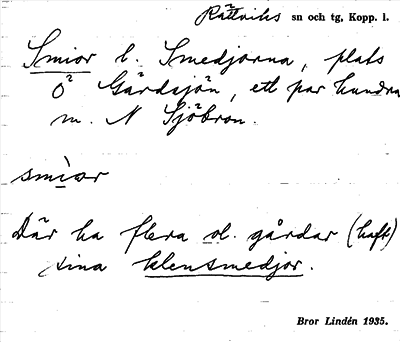 Rättviks sn och tg, Kopp. l.
Smior l. Smedjorna, plats
Ö Gärdsjön, ett par hundra
m. N Sjöbron.
smìor
Där ha flera ol. gårdar (haft)
sina klensmedjor.
Bror Lindén 1935.